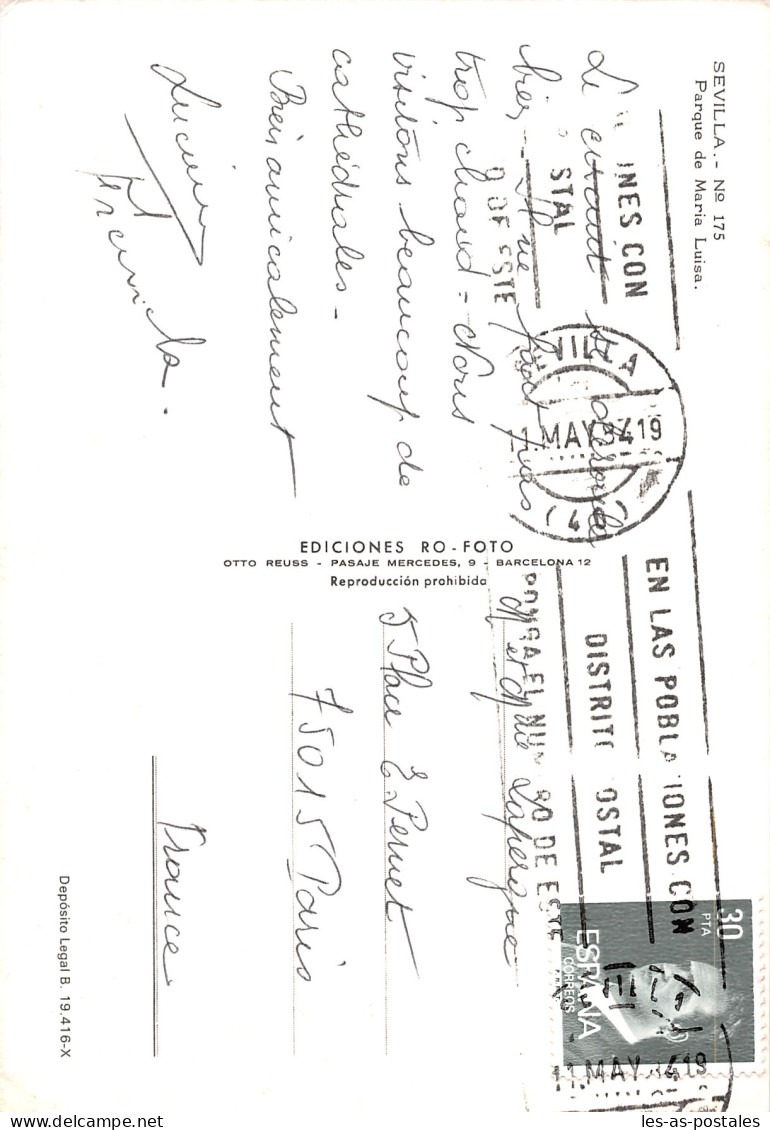 SEVILLA.- Nº 175
Parque de Maria Luisa.
Le circuit se déroule
bien. - Il ne fait pas
trop chaud = Nous
visitons beaucoup de
cathédrales -
Bien amicalement
EDICIONES RO-FOTO
OTTO REUSS - PASAJE MERCEDES, 9 - BARCELONA 12
Reproducción prohibida
M et Mme Laperque
5 Place E Pernet
75015 Paris
France
Depósito Legal B. 19.416-X
INES CON
STAL
O DE ESTE
11 MAY 84 19
EN LAS POBLACIONES CON
DISTRITO POSTAL
PONGA EL NUMERO DE ESTE
30
PTA
ESPAÑA
CORREOS
11 MAY 84 19
les-as-postales